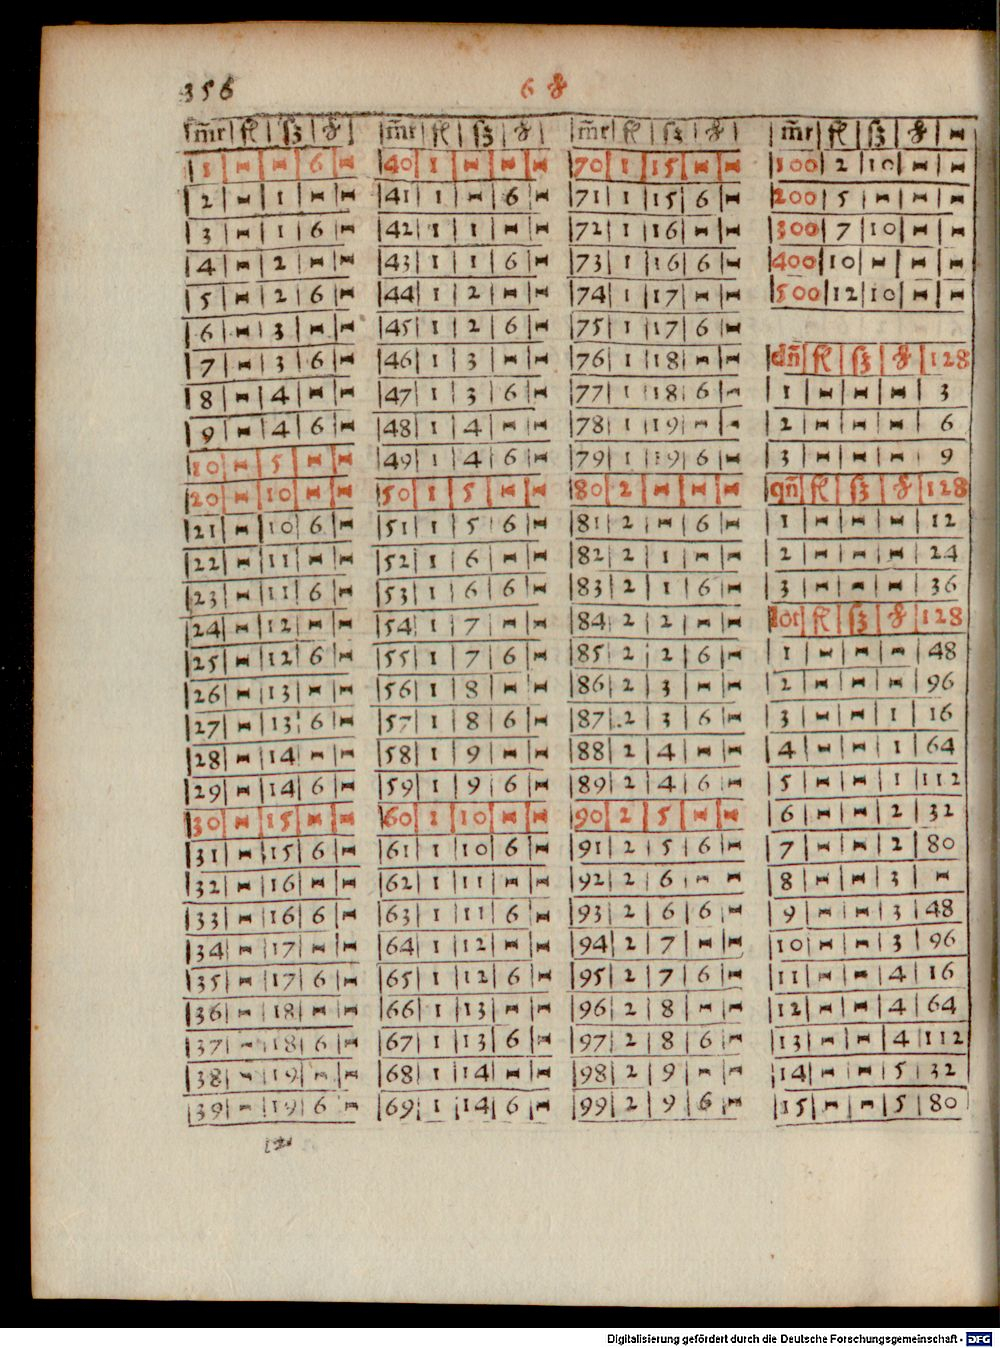 356
6 ₰
m̃r | fl | ſʒ | ₰ |
1 | ⁌ | ⁌ | 6 | ⁌
2 | ⁌ | 1 | ⁌ | ⁌
3 | ⁌ | 1 | 6 | ⁌
4 | ⁌ | 2 | ⁌ | ⁌
5 | ⁌ | 2 | 6 | ⁌
6 | ⁌ | 3 | ⁌ | ⁌
7 | ⁌ | 3 | 6 | ⁌
8 | ⁌ | 4 | ⁌ | ⁌
9 | ⁌ | 4 | 6 | ⁌
10 | ⁌ | 5 | ⁌ | ⁌
20 | ⁌ | 10 | ⁌ | ⁌
21 | ⁌ | 10 | 6 | ⁌
22 | ⁌ | 11 | ⁌ | ⁌
23 | ⁌ | 11 | 6 | ⁌
24 | ⁌ | 12 | ⁌ | ⁌
25 | ⁌ | 12 | 6 | ⁌
26 | ⁌ | 13 | ⁌ | ⁌
27 | ⁌ | 13 | 6 | ⁌
28 | ⁌ | 14 | ⁌ | ⁌
29 | ⁌ | 14 | 6 | ⁌
30 | ⁌ | 15 | ⁌ | ⁌
31 | ⁌ | 15 | 6 | ⁌
32 | ⁌ | 16 | ⁌ | ⁌
33 | ⁌ | 16 | 6 | ⁌
34 | ⁌ | 17 | ⁌ | ⁌
35 | ⁌ | 17 | 6 | ⁌
36 | ⁌ | 18 | ⁌ | ⁌
37 | ⁌ | 18 | 6 | ⁌
38 | ⁌ | 19 | ⁌ | ⁌
39 | ⁌ | 19 | 6 | ⁌
m̃r | fl | ſʒ | ₰ |
40 | 1 | ⁌ | ⁌ | ⁌
41 | 1 | ⁌ | 6 | ⁌
42 | 1 | 1 | ⁌ | ⁌
43 | 1 | 1 | 6 | ⁌
44 | 1 | 2 | ⁌ | ⁌
45 | 1 | 2 | 6 | ⁌
46 | 1 | 3 | ⁌ | ⁌
47 | 1 | 3 | 6 | ⁌
48 | 1 | 4 | ⁌ | ⁌
49 | 1 | 4 | 6 | ⁌
50 | 1 | 5 | ⁌ | ⁌
51 | 1 | 5 | 6 | ⁌
52 | 1 | 6 | ⁌ | ⁌
53 | 1 | 6 | 6 | ⁌
54 | 1 | 7 | ⁌ | ⁌
55 | 1 | 7 | 6 | ⁌
56 | 1 | 8 | ⁌ | ⁌
57 | 1 | 8 | 6 | ⁌
58 | 1 | 9 | ⁌ | ⁌
59 | 1 | 9 | 6 | ⁌
60 | 1 | 10 | ⁌ | ⁌
61 | 1 | 10 | 6 | ⁌
62 | 1 | 11 | ⁌ | ⁌
63 | 1 | 11 | 6 | ⁌
64 | 1 | 12 | ⁌ | ⁌
65 | 1 | 12 | 6 | ⁌
66 | 1 | 13 | ⁌ | ⁌
67 | 1 | 13 | 6 | ⁌
68 | 1 | 14 | ⁌ | ⁌
69 | 1 | 14 | 6 | ⁌
m̃r | fl | ſʒ | ₰ |
70 | 1 | 15 | ⁌ | ⁌
71 | 1 | 15 | 6 | ⁌
72 | 1 | 16 | ⁌ | ⁌
73 | 1 | 16 | 6 | ⁌
74 | 1 | 17 | ⁌ | ⁌
75 | 1 | 17 | 6 | ⁌
76 | 1 | 18 | ⁌ | ⁌
77 | 1 | 18 | 6 | ⁌
78 | 1 | 19 | ⁌ | ⁌
79 | 1 | 19 | 6 | ⁌
80 | 2 | ⁌ | ⁌ | ⁌
81 | 2 | ⁌ | 6 | ⁌
82 | 2 | 1 | ⁌ | ⁌
83 | 2 | 1 | 6 | ⁌
84 | 2 | 2 | ⁌ | ⁌
85 | 2 | 2 | 6 | ⁌
86 | 2 | 3 | ⁌ | ⁌
87 | 2 | 3 | 6 | ⁌
88 | 2 | 4 | ⁌ | ⁌
89 | 2 | 4 | 6 | ⁌
90 | 2 | 5 | ⁌ | ⁌
91 | 2 | 5 | 6 | ⁌
92 | 2 | 6 | ⁌ | ⁌
93 | 2 | 6 | 6 | ⁌
94 | 2 | 7 | ⁌ | ⁌
95 | 2 | 7 | 6 | ⁌
96 | 2 | 8 | ⁌ | ⁌
97 | 2 | 8 | 6 | ⁌
98 | 2 | 9 | ⁌ | ⁌
99 | 2 | 9 | 6 | ⁌
m̃r | fl | ſʒ | ₰ | ⁌
100 | 2 | 10 | ⁌ | ⁌
200 | 5 | ⁌ | ⁌ | ⁌
300 | 7 | 10 | ⁌ | ⁌
400 | 10 | ⁌ | ⁌ | ⁌
500 | 12 | 10 | ⁌ | ⁌
dñ | fl | ſʒ | ₰ | 128
1 | ⁌ | ⁌ | ⁌ | 3
2 | ⁌ | ⁌ | ⁌ | 6
3 | ⁌ | ⁌ | ⁌ | 9
qñ | fl | ſʒ | ₰ | 128
1 | ⁌ | ⁌ | ⁌ | 12
2 | ⁌ | ⁌ | ⁌ | 24
3 | ⁌ | ⁌ | ⁌ | 36
lot | fl | ſʒ | ₰ | 128
1 | ⁌ | ⁌ | ⁌ | 48
2 | ⁌ | ⁌ | ⁌ | 96
3 | ⁌ | ⁌ | 1 | 16
4 | ⁌ | ⁌ | 1 | 64
5 | ⁌ | ⁌ | 1 | 112
6 | ⁌ | ⁌ | 2 | 32
7 | ⁌ | ⁌ | 2 | 80
8 | ⁌ | ⁌ | 3 | ⁌
9 | ⁌ | ⁌ | 3 | 48
10 | ⁌ | ⁌ | 3 | 96
11 | ⁌ | ⁌ | 4 | 16
12 | ⁌ | ⁌ | 4 | 64
13 | ⁌ | ⁌ | 4 | 112
14 | ⁌ | ⁌ | 5 | 32
15 | ⁌ | ⁌ | 5 | 80
Digitalisierung gefördert durch die Deutsche Forschungsgemeinschaft - DFG